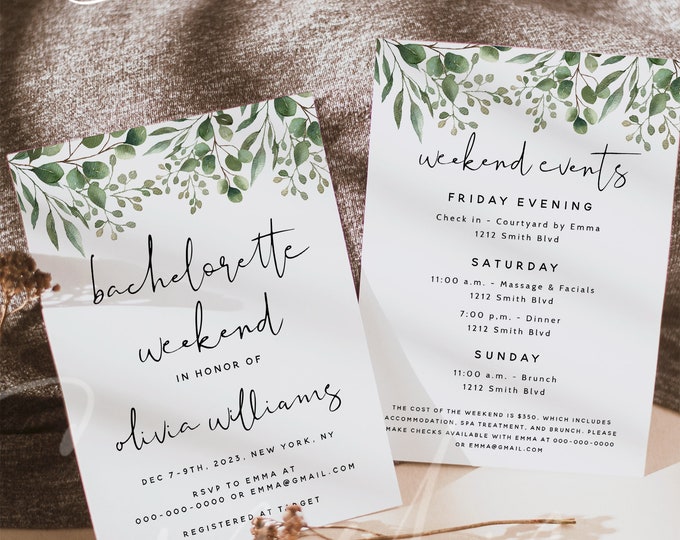 bachelorette
weekend
IN HONOR OF
olivia williams
DEC 7-9TH, 2025, NEW YORK, NY
RSVP TO EMMA AT
000-000-0000 OR EMMA@GMAIL.COM
REGISTERED AT TARGET
weekend events
FRIDAY EVENING
Check in - Courtyard by Emma
1212 Smith Blvd
SATURDAY
11:00 a.m. - Massage & Facials
1212 Smith Blvd
7:00 p.m. - Dinner
1212 Smith Blvd
SUNDAY
11:00 a.m. - Brunch
1212 Smith Blvd
THE COST OF THE WEEKEND IS $350, WHICH INCLUDES
ACCOMMODATION, SPA TREATMENT, AND BRUNCH. PLEASE
MAKE CHECKS AVAILABLE WITH EMMA AT 000-000-0000
OR EMMA@GMAIL.COM